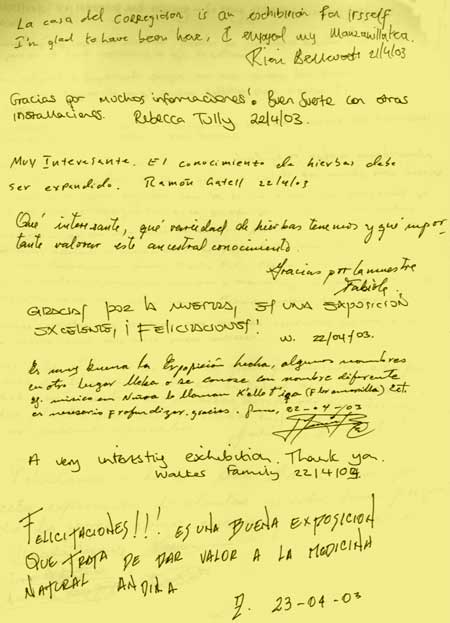 La casa del corregidor is an exhibition for irsself
I'm glad to have been here, I enjoyed my Manzanillatea.
21/4/03
Gracias por muchos informaciones! Buen suerte con otras
installaciones. Rebecca Tully 22/4/03.
Muy Interesante. El conocimiento de hierbas debe
ser expandido. Ramón Gatell 22/4/03
Qué interesante, qué variedad de hierbas tenemos y qué impor-
tante valorar este ancestral conocimiento.
Gracias por la muestra
Fabiola.
GRACIAS POR LA MUESTRA, ES UNA EXPOSICIÓN
EXCELENTE, ¡FELICITACIONES!
W. 22/04/03.
Es muy buena la Exposición hecha, algunos nombres
en otro lugar o se conoce con nombre diferente
ej. en Ñuñoa le llaman (Flor amarilla) Ect.
es necesario Profundizar. gracias. 22-04-03
A very interestig exhibition. Thank you.
Walker Family 22/4/03.
FELICITACIONES!!! ES UNA BUENA EXPOSICION
QUE TRATA DE DAR VALOR A LA MEDICINA
NATURAL ANDINA
23-04-03